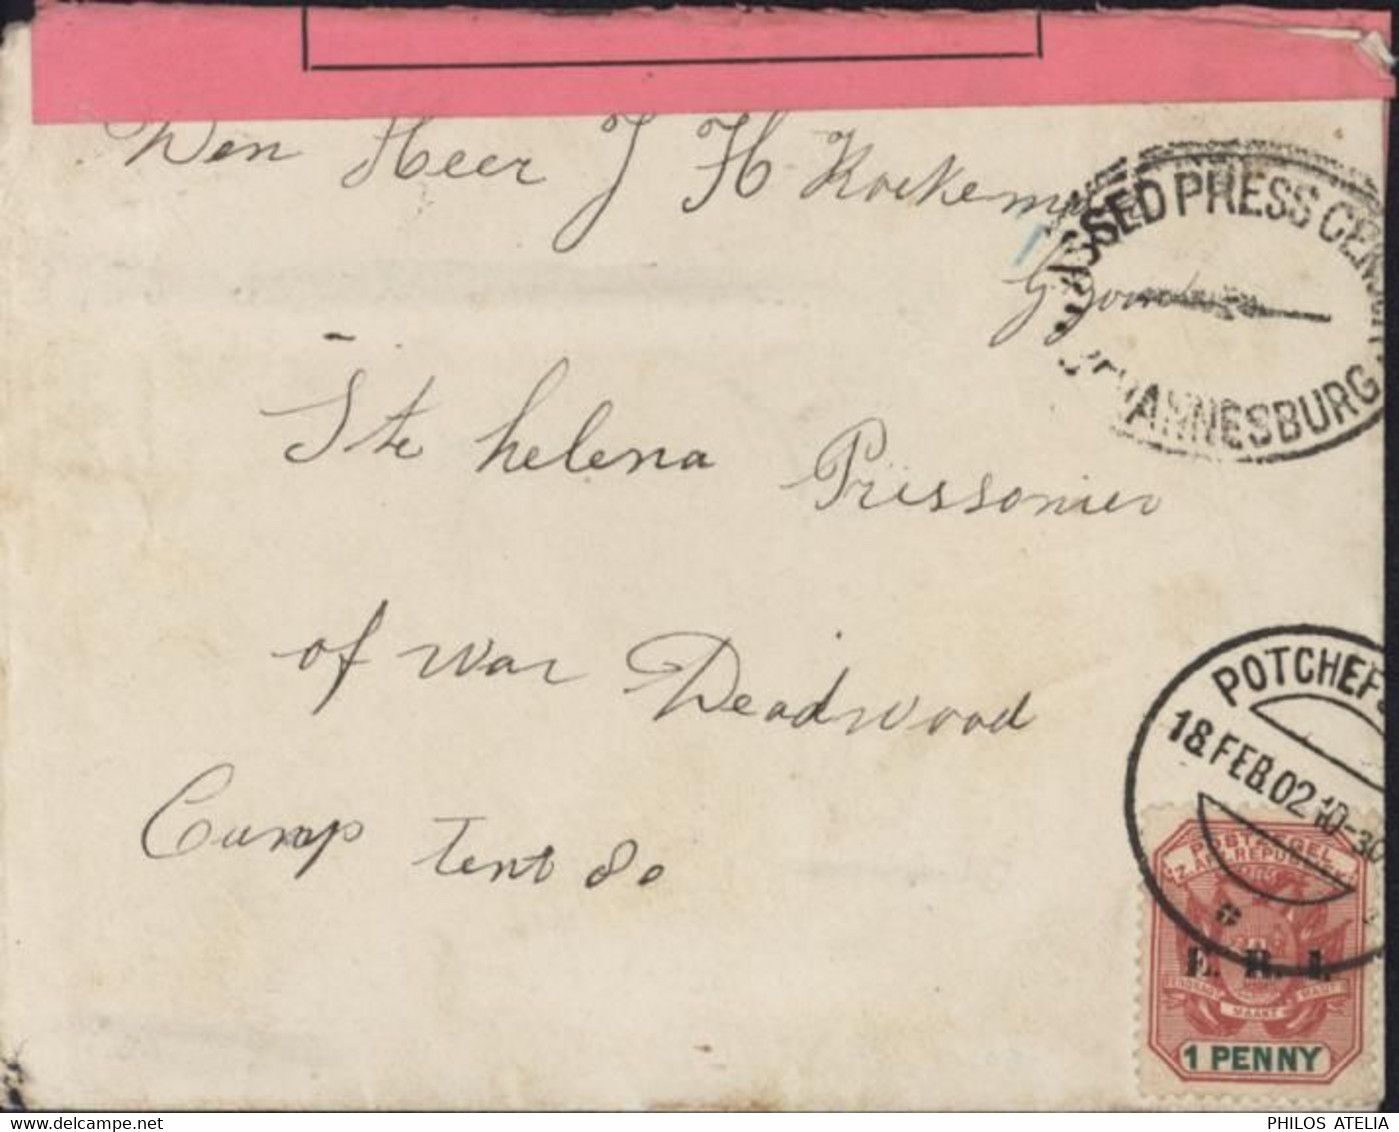 Den Heer J H Koekemoer
PASSED PRESS CENSOR
JOHANNESBURG
Ste helena Prissonier
of war Deadwood
Camp Tent 80
POTCHEFS
18.FEB.02 10-30
POSTZEGEL
Z. AFR. REPUBLIEK
E. R. I.
EENDRAGT MAAKT MAGT
1 PENNY
PHILOS ATELIA